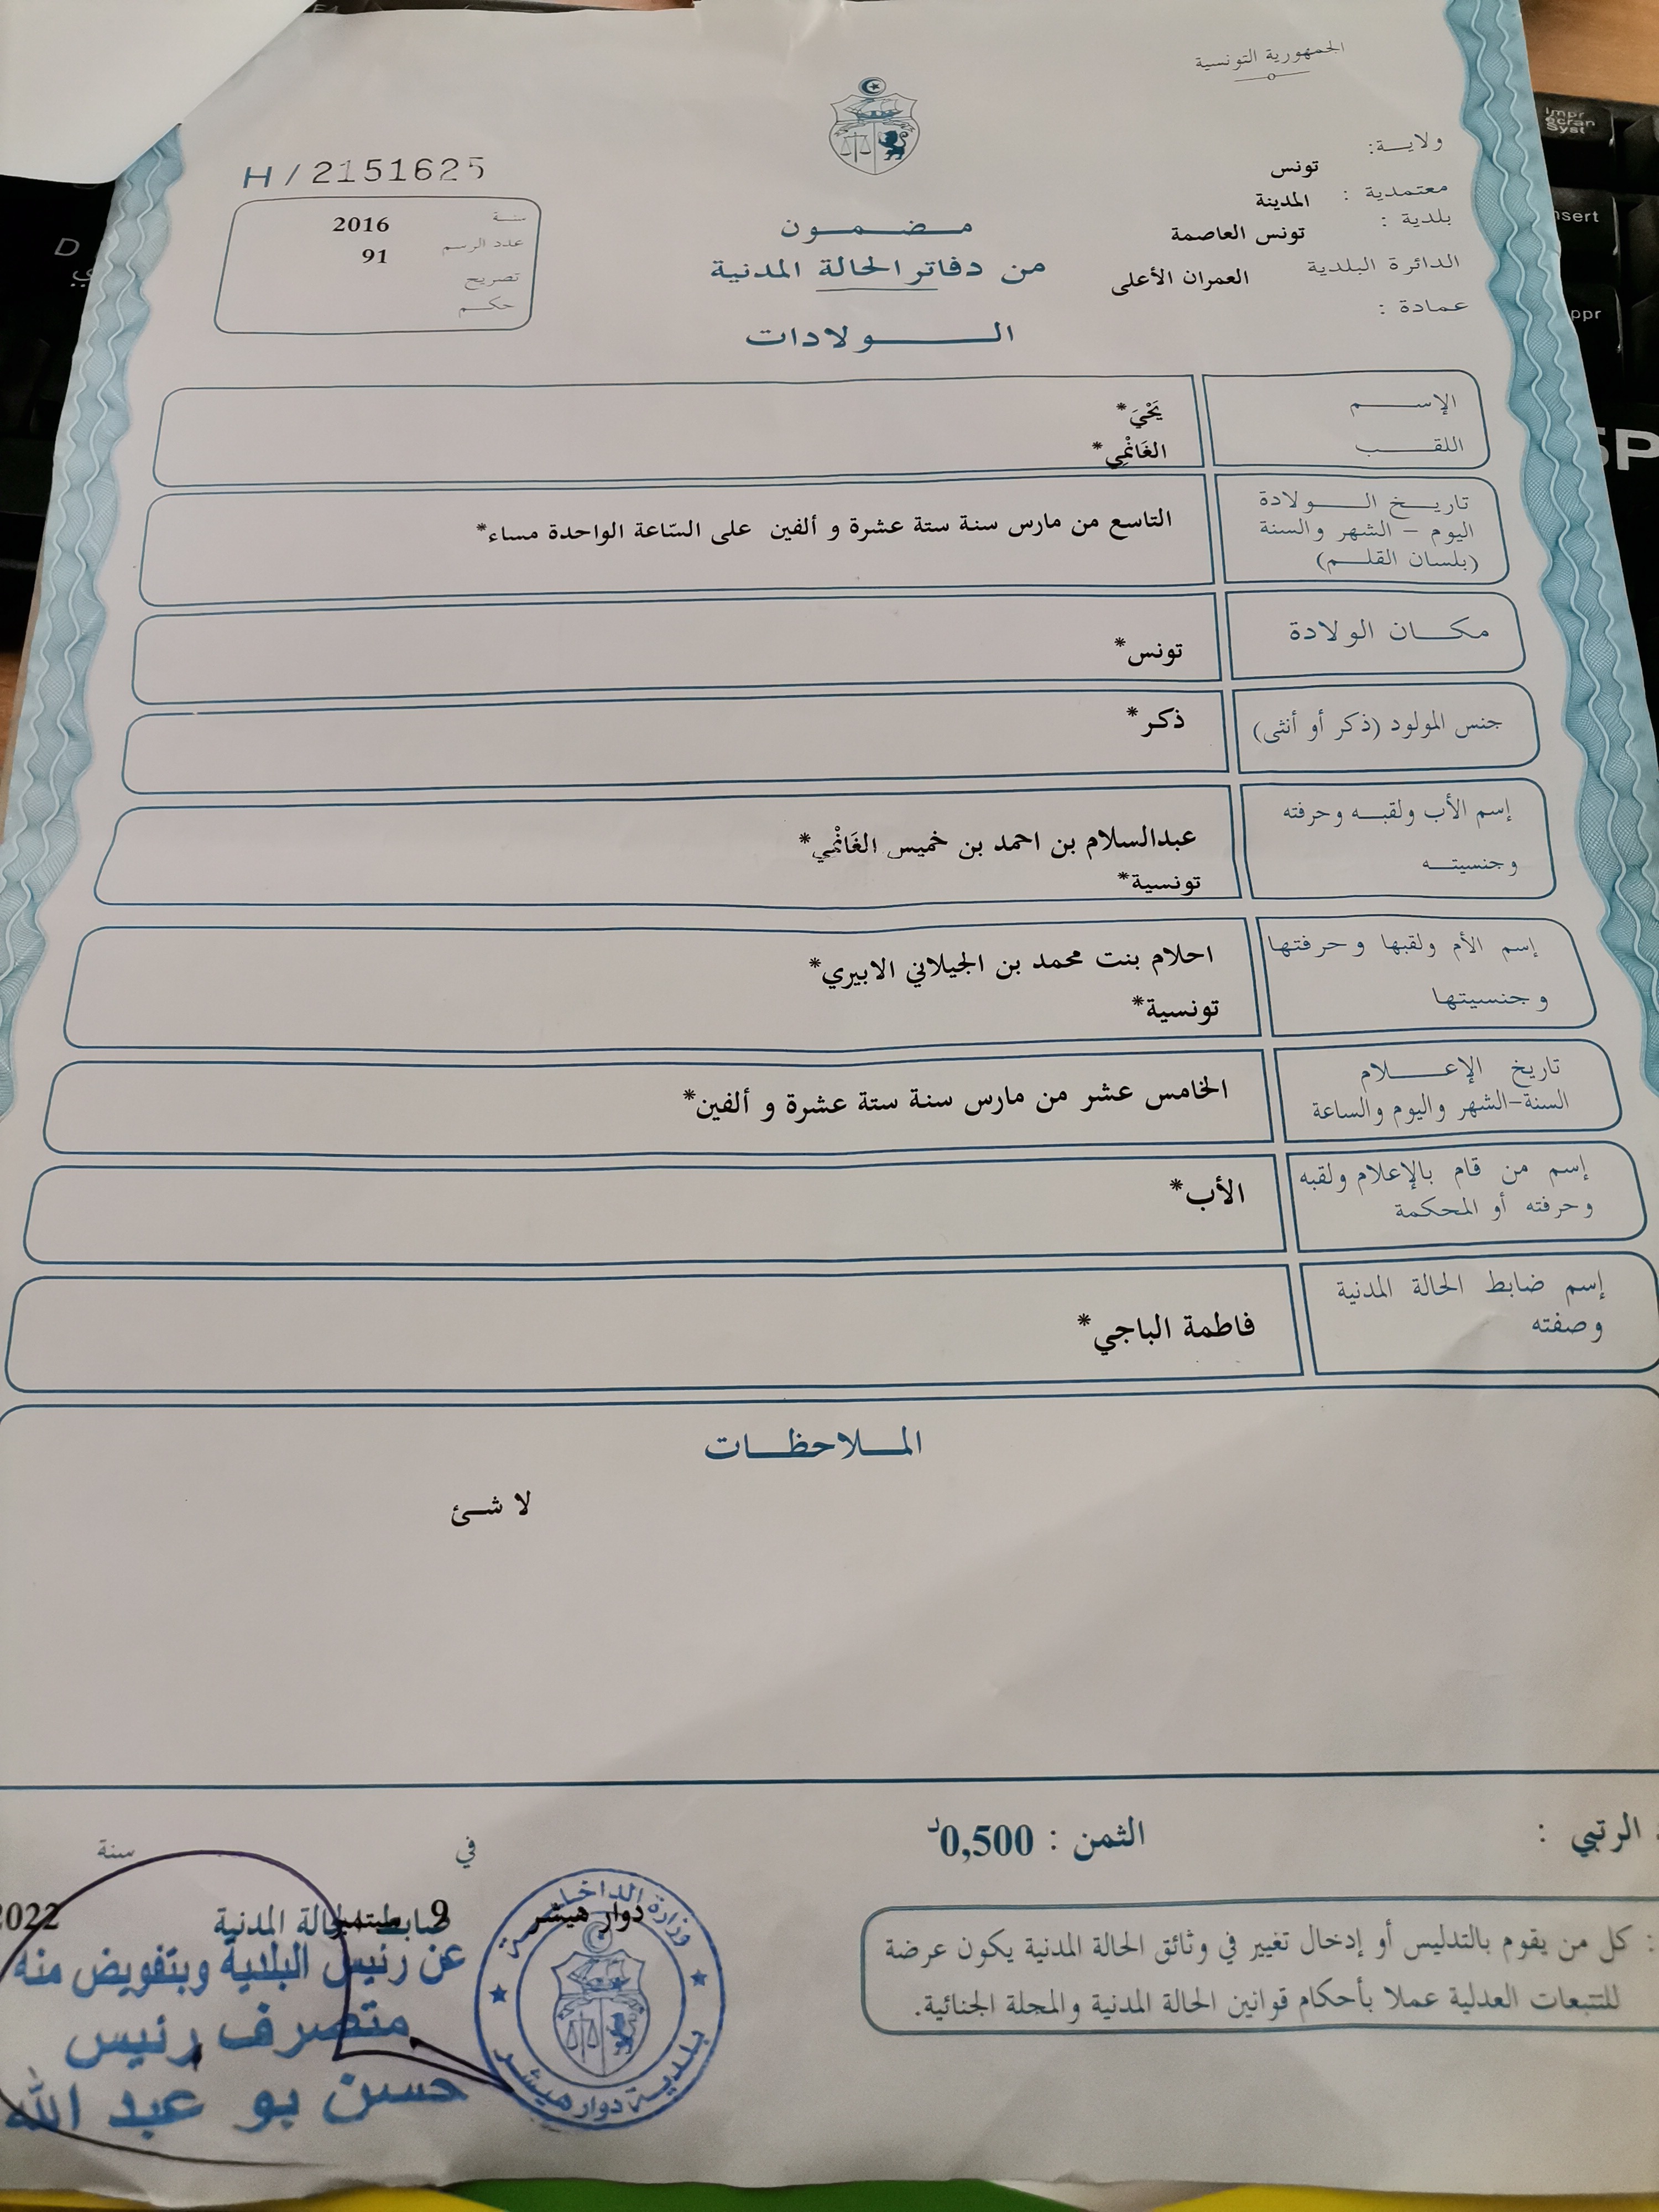 الجمهورية التونسية
ولايـــة:
تونس
معتمدية :
المدينة
بلدية :
تونس العاصمة
الدائرة البلدية
العمران الأعلى
عمادة :
H / 2151625
سنة 2016
عدد الرسم 91
تصريح
حكم
مضمون
من دفاتر الحالة المدنية
الولادات
الإسم
يَحْيَ*
اللقب
الغَانْمِي*
تاريخ الولادة
اليوم – الشهر والسنة
(بلسان القلم)
التاسع من مارس سنة ستة عشرة و ألفين على السّاعة الواحدة مساء*
مكان الولادة
تونس*
جنس المولود (ذكر أو أنثى)
ذكر*
إسم الأب ولقبه وحرفته
وجنسيته
عبدالسلام بن احمد بن خميس الغَانْمِي*
تونسية*
إسم الأم ولقبها وحرفتها
وجنسيتها
احلام بنت محمد بن الجيلاني الابيري*
تونسية*
تاريخ الإعلام
السنة-الشهر واليوم والساعة
الخامس عشر من مارس سنة ستة عشرة و ألفين*
إسم من قام بالإعلام ولقبه
وحرفته أو المحكمة
الأب*
إسم ضابط الحالة المدنية
وصفته
فاطمة الباجي*
الملاحظات
لا شئ
الرتبي :
الثمن : 0,500د
في
سنة
دوار هيشر
9 سبتمبر
2022
ضابط الحالة المدنية
عن رئيس البلدية وبتفويض منه
متصرف رئيس
حسين بو عبد الله
وزارة الداخلية
بلدية دوار هيشر
: كل من يقوم بالتدليس أو إدخال تغيير في وثائق الحالة المدنية يكون عرضة
للتتبعات العدلية عملا بأحكام قوانين الحالة المدنية والمجلة الجنائية.
Impr
écran
Syst
nsert
ppr
SP
D
ي